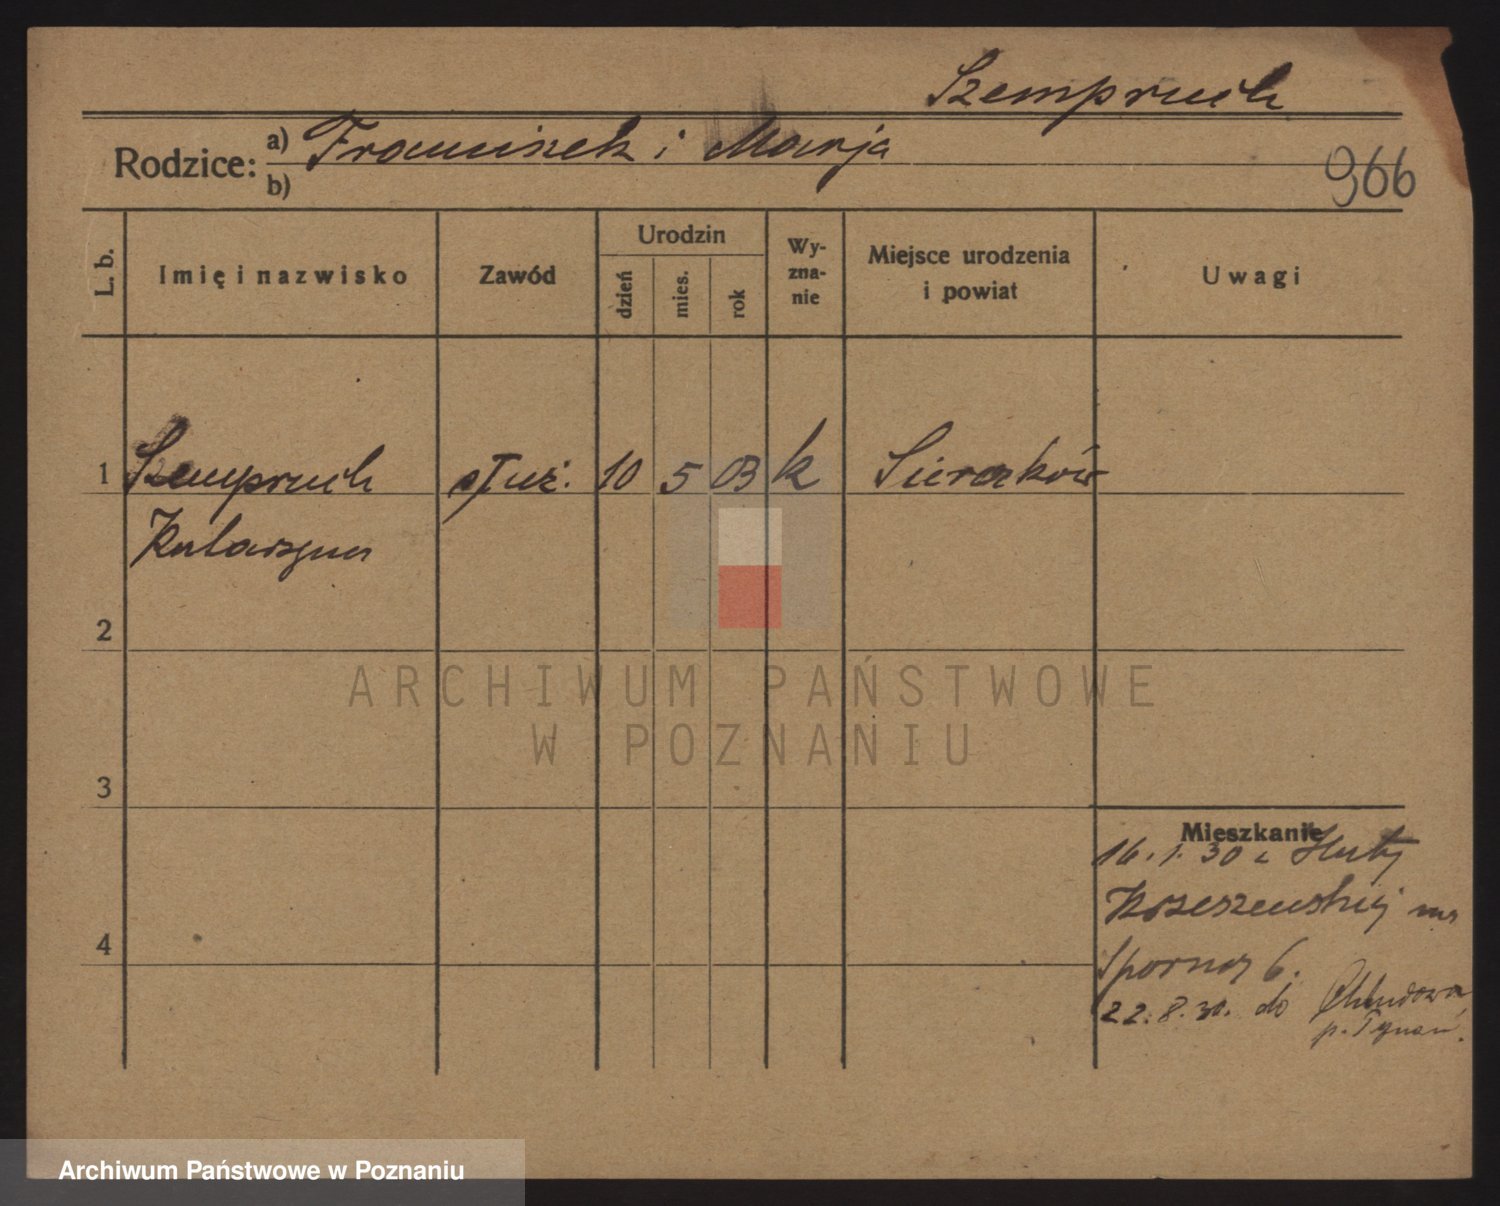 Szempruch
Rodzice: a) Franciszek i Marja
b)
966
L. b.
Imię i nazwisko
Zawód
Urodzin
dzień
mies.
rok
Wy-
zna-
nie
Miejsce urodzenia
i powiat
Uwagi
1 Szempruch służ. 10 5 03 k Sieraków
Katarzyna
2
3
4
Mieszkanie
16.1.30 z Huty
na
Sporna 6.
22.8.30. do Chludowa
p.
ARCHIWUM PAŃSTWOWE
W POZNANIU
Archiwum Państwowe w Poznaniu